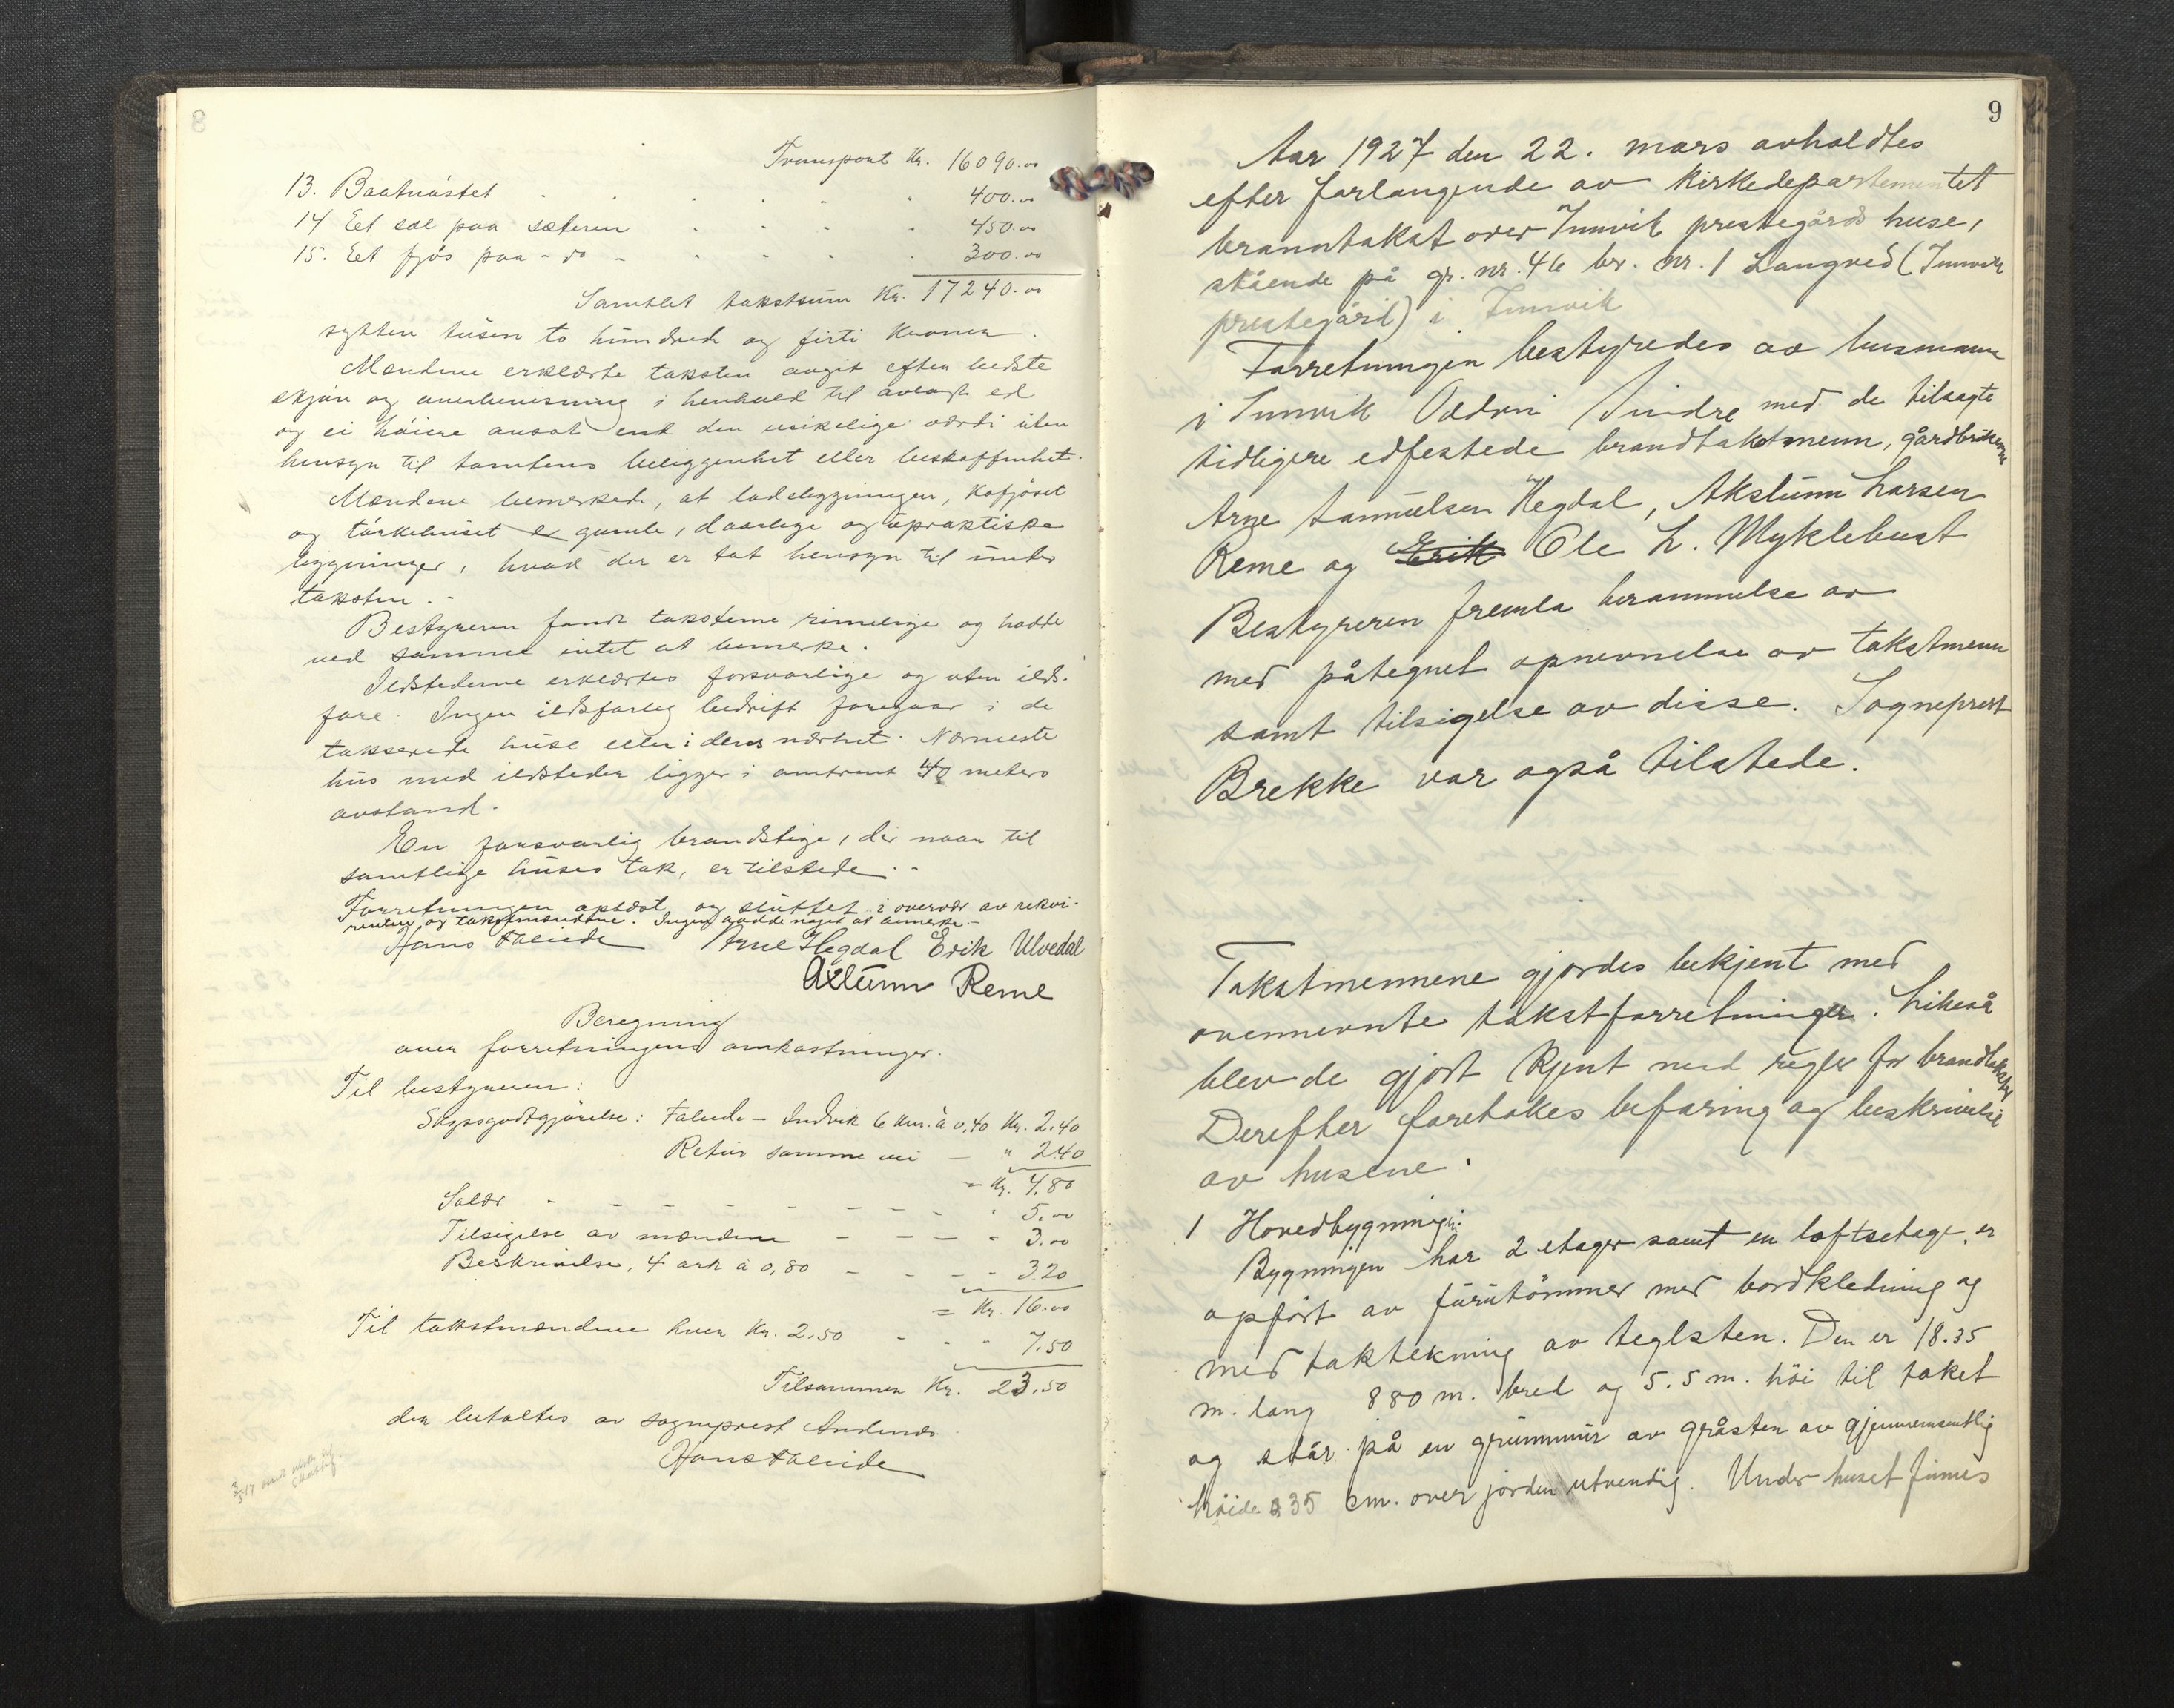 Transport Kr. 16090.00
13. Baatnøstet 400.00
14 Eet sel paa sæteren 450.00
15. Eet fjøs paa - do - 300.00
Samtlet takstsum Kr. 17240.00
sytten tusen to hundrede og firti kroner.
Mændene erklærte taksten avgit efter bedste
skjøn og overbevisning i henhold til avlagt ed
og ei høiere ansat end den virkelige værdi uten
hensyn til tomtens beliggenhet eller beskaffenhet.
Mændene bemerkede, at ladebygningen, kofjøset
og tørkehuset er gamle, daarlige og upraktiske
bygninger, hvad der er tat hensyn til under
taksten.-
Bestyreren fandt taksterne rimelige og hadde
ved samme intet at bemerke.
Ildstederne erklærtes forsvarlige og uten ilds-
fare. Ingen ildsfarlig bedrift foregaar i de
takserede huse eller i deres nærhet. Nærmeste
hus med ildsteder ligger i omtrent 40 meters
avstand.
En forsvarlig brandstige, der naar til
samtlige huses tak, er tilstede.-
Forretningen oplæst og sluttet i overvær av rekvi-
renten og takstmændene. Ingen hadde noget at anmerke.-
Hans Faleide Arne Hegdal Erik Ulvedal
Axtunn Reme
Beregning
over forretningens omkostninger.
Til bestyreren:
Skyssgodtgjørelse: Faleide - Indvik 6 km. à 0,40 Kr. 2.40
Retur samme vei - " 2.40
= Kr. 4.80
Salær - 5.00
Tilsigelse av mændene - 3.00
Beskrivelse, 4 ark à 0,80 - 3.20
= Kr. 16.00
Til takstmændene hver Kr. 2.50 - 7.50
Tilsammen Kr. 23.50
der betaltes av sogneprest
Hans Faleide
9
Aar 1927 den 22. mars avholdtes
efter forlangende av kirkedepartementet
branntakst over Innvik prestegårds huse,
stående på gr. nr. 46 br. nr. 1 Langved (Innvik
prestegård) i Innvik
Forretningen bestyredes av lensmann
i Innvik Oddvin Sindre med de tilsagte
tidligere edfestede brandtakstmenn, gårdbrukerne
Arne Samuelsen Hegdal, Akslunn Larsen
Reme og Erik Ole L. Myklebust
Bestyreren fremla berammelse av
med påtegnet opnevnelse av takstmenn
samt tilsigelse av disse. Sogneprest
Brekke var også tilstede.
Takstmennene gjordes bekjent med
ovennevnte takstforretninger. Likeså
blev de gjort kjent med regler for brandtakster
Derefter foretakes befaring og beskrivelse
av husene.
1 Hovedbygning:
Bygningen har 2 etager samt en loftsetage, er
opført av furutømmer med bordkledning og
med taktekning av teglsten. Den er 18.35
m. lang 880 m. bred og 5.5 m. høi til taket
og står på en grunnmur av gråsten av gjennemsnitlig
høide 35 cm. over jorden utvendig. Under huset finnes